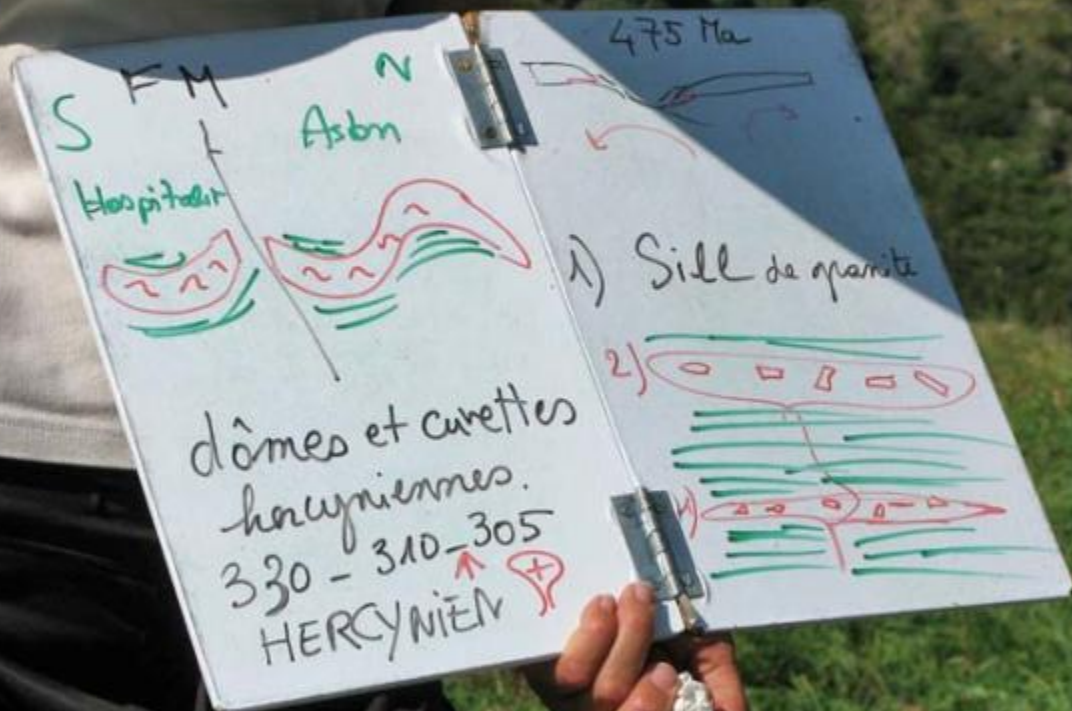 S FM N
Aston
Hospitalet
dômes et cuvettes
hercyniennes.
330 - 310 - 305
HERCYNIEN
475 Ma
1) Sill de granite
2)
1)